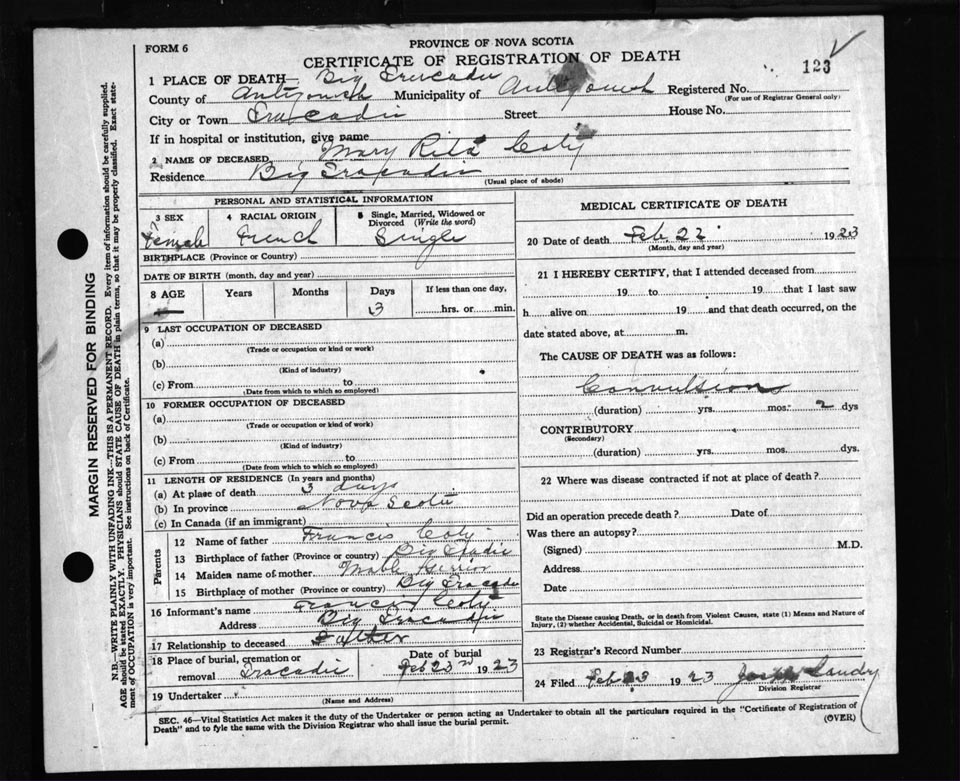 FORM 6
PROVINCE OF NOVA SCOTIA
CERTIFICATE OF REGISTRATION OF DEATH
123
1 PLACE OF DEATH— Big Tracadie
County of Antigonish Municipality of Antigonish Registered No.
(For use of Registrar General only)
City or Town Tracadie Street House No.
If in hospital or institution, give name
2 NAME OF DECEASED Mary Rita
Residence Big Tracadie
(Usual place of abode)
PERSONAL AND STATISTICAL INFORMATION
3 SEX 4 RACIAL ORIGIN 5 Single, Married, Widowed or Divorced (Write the word)
Female French Single
BIRTHPLACE (Province or Country)
DATE OF BIRTH (month, day and year)
8 AGE Years Months Days If less than one day,
3 hrs. or min.
9 LAST OCCUPATION OF DECEASED
(a)
(Trade or occupation or kind or work)
(b)
(Kind of industry)
(c) From to
(Date from which to which so employed)
10 FORMER OCCUPATION OF DECEASED
(a)
(Trade or occupation or kind of work)
(b)
(Kind of industry)
(c) From to
(Date from which to which so employed)
11 LENGTH OF RESIDENCE (In years and months)
(a) At place of death 3 days
(b) In province Nova Scotia
(c) In Canada (if an immigrant)
Parents
12 Name of father Francis
13 Birthplace of father (Province or country) Big
14 Maiden name of mother Mable
15 Birthplace of mother (Province or country) Big Tracadie
16 Informant's name Francis
Address Big Tracadie
17 Relationship to deceased Father
18 Place of burial, cremation or removal Tracadie
Date of burial
Feb 23rd 1923
19 Undertaker
(Name and Address)
MEDICAL CERTIFICATE OF DEATH
20 Date of death Feb. 22 1923
(Month, day and year)
21 I HEREBY CERTIFY, that I attended deceased from
19 to 19 that I last saw
h alive on 19 and that death occurred, on the
date stated above, at m.
The CAUSE OF DEATH was as follows:
Convulsions
(duration) yrs. mos. 2 dys
CONTRIBUTORY
(Secondary)
(duration) yrs. mos. dys.
22 Where was disease contracted if not at place of death?
Did an operation precede death? Date of
Was there an autopsy?
(Signed) M.D.
Address
Date
State the Disease causing Death, or in death from Violent Causes, state (1) Means and Nature of
Injury, (2) whether Accidental, Suicidal or Homicidal.
23 Registrar's Record Number
24 Filed Feb 23 1923 Joseph Landry
Division Registrar
SEC. 46—Vital Statistics Act makes it the duty of the Undertaker or person acting as Undertaker to obtain all the particulars required in the "Certificate of Registration of
Death" and to fyle the same with the Division Registrar who shall issue the burial permit. (OVER)
MARGIN RESERVED FOR BINDING
N.B.—WRITE PLAINLY WITH UNFADING INK—THIS IS A PERMANENT RECORD. Every item of information should be carefully supplied.
AGE should be stated EXACTLY. PHYSICIANS should STATE CAUSE OF DEATH in plain terms, so that it may be properly classified. Exact state-
ment of OCCUPATION is very important. See instructions on back of Certificate.